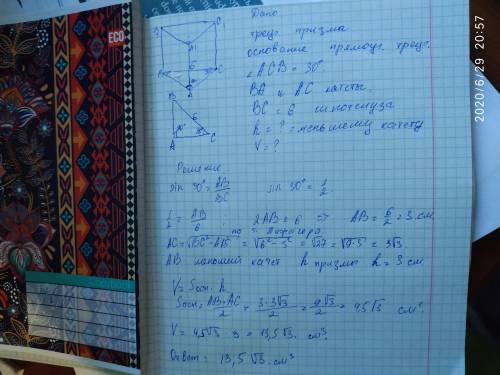 ECO
2020/6/29 20:57
Дано
треуг. призма
основание прямоуг. треуг.
∠ACB = 30°
BA и AC катеты
BC = 6 гипотенуза
h = ? = меньшему катету
V = ?
B
6
A
C
Решение
sin 30° = AB/BC sin 30° = 1/2
1/2 = AB/6 2AB = 6 => AB = 6/2 = 3 см
по т. Пифагора
AC = √BC² - AB² = √6² - 3² = √27 = √9·3 = 3√3
AB меньший катет h призмы h = 3 см
V = Sосн. h
Sосн = AB·AC/2 = 3·3√3/2 = 9√3/2 = 4,5√3 см²
V = 4,5√3 · 3 = 13,5√3 см³
Ответ: 13,5 √3 см³